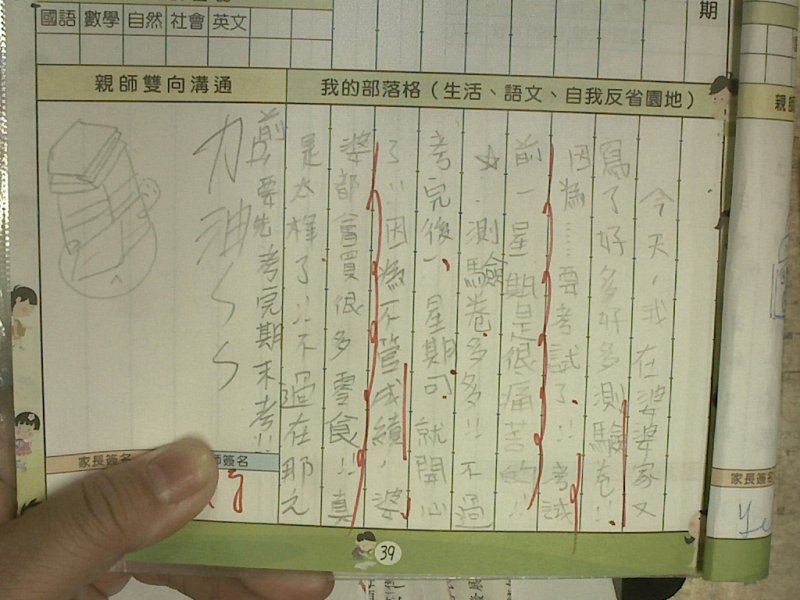 期
國語 數學 自然 社會 英文
親師雙向溝通
我的部落格（生活、語文、自我反省園地）
今天，我在婆婆家又
寫了好多好多測驗卷!!
因為……要考試了!!考試
前一星期是很痛苦的!!
測驗卷多多!!不過
考完後，星期可就開心
了!!因為不管成績，婆
婆都會買很多零食!!真
是太棒了!!不過在那之
前要先考完期末考!!
加油
家長簽名
師簽名
39
親師
家長簽名